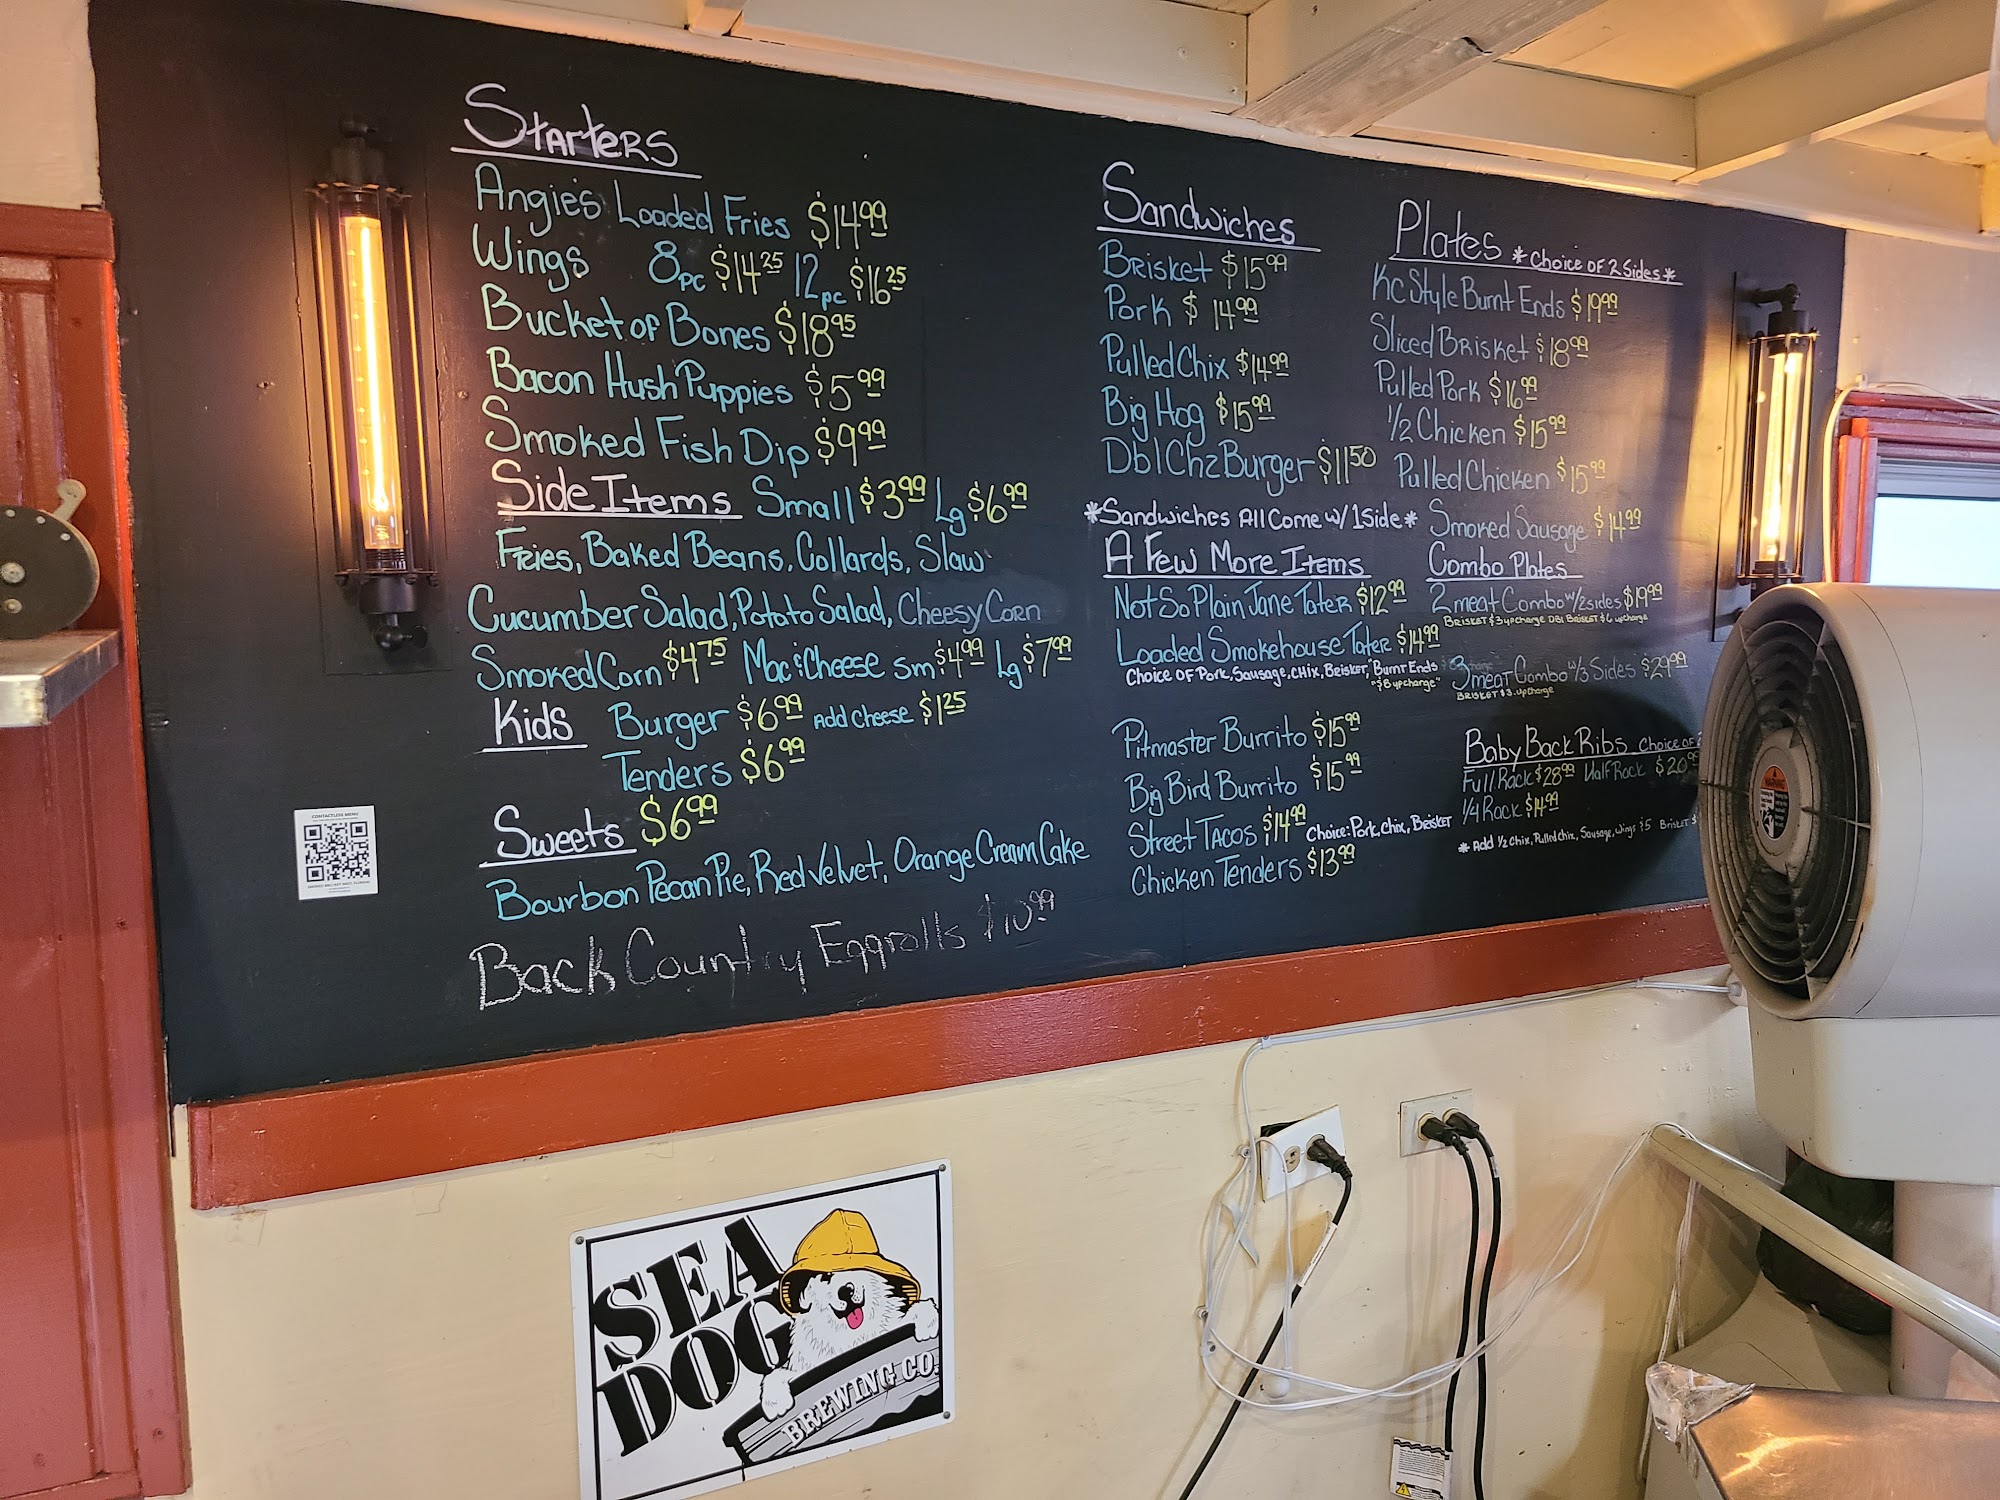 Starters
Angie's Loaded Fries $14.99
Wings 8pc $14.25 12pc $16.25
Bucket of Bones $18.95
Bacon Hush Puppies $5.99
Smoked Fish Dip $9.99
Side Items Small $3.99 Lg $6.99
Fries, Baked Beans, Collards, Slaw
Cucumber Salad, Potato Salad, Cheesy Corn
Smoked Corn $4.75 Mac & Cheese sm $4.99 Lg $7.99
Kids Burger $6.99 Add Cheese $1.25
Tenders $6.99
Sweets $6.99
Bourbon Pecan Pie, Red Velvet, Orange Cream Cake
Back Country Eggrolls $10.99
Sandwiches
Brisket $15.99
Pork $14.99
Pulled Chix $14.99
Big Hog $15.99
Dbl Chz Burger $11.50
*Sandwiches All Come w/ 1 Side*
A Few More Items
Not So Plain Jane Tater $12.99
Loaded Smokehouse Tater $14.99
Choice of Pork, Sausage, Chix, Brisket, Burnt Ends
"$8 upcharge"
Pitmaster Burrito $15.99
Big Bird Burrito $15.99
Street Tacos $14.99 Choice: Pork, Chix, Brisket
Chicken Tenders $13.99
Plates *Choice of 2 Sides*
KC Style Burnt Ends $19.99
Sliced Brisket $18.99
Pulled Pork $16.99
1/2 Chicken $15.99
Pulled Chicken $15.99
Smoked Sausage $14.99
Combo Plates
2 meat Combo w/ 2 sides $19.99
Brisket $3 upcharge Dbl Brisket $6 upcharge
3 meat Combo w/ 3 Sides $29.99
Brisket $3 upcharge
Baby Back Ribs Choice of
Full Rack $28.99 Half Rack $20.99
1/4 Rack $14.99
* Add 1/2 Chix, Pulled Chix, Sausage, Wings $5 Brisket $
CONTACTLESS MENU
SEA
DOG
BREWING CO.